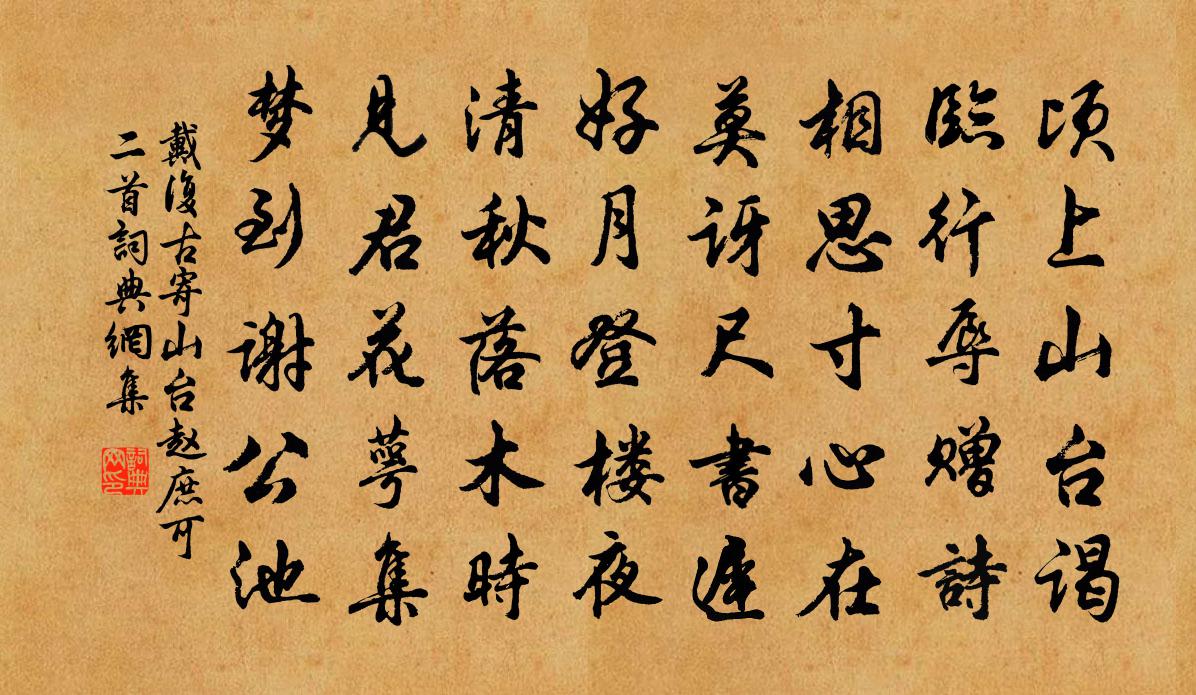 顷上山台谒
臨行辱赠詩
相思寸心在
莫讶尺書遲
好月登楼夜
清秋落木時
見君花萼集
梦到谢公池
戴復古寄山台赵庶可
二首詞典網集
詞典網印